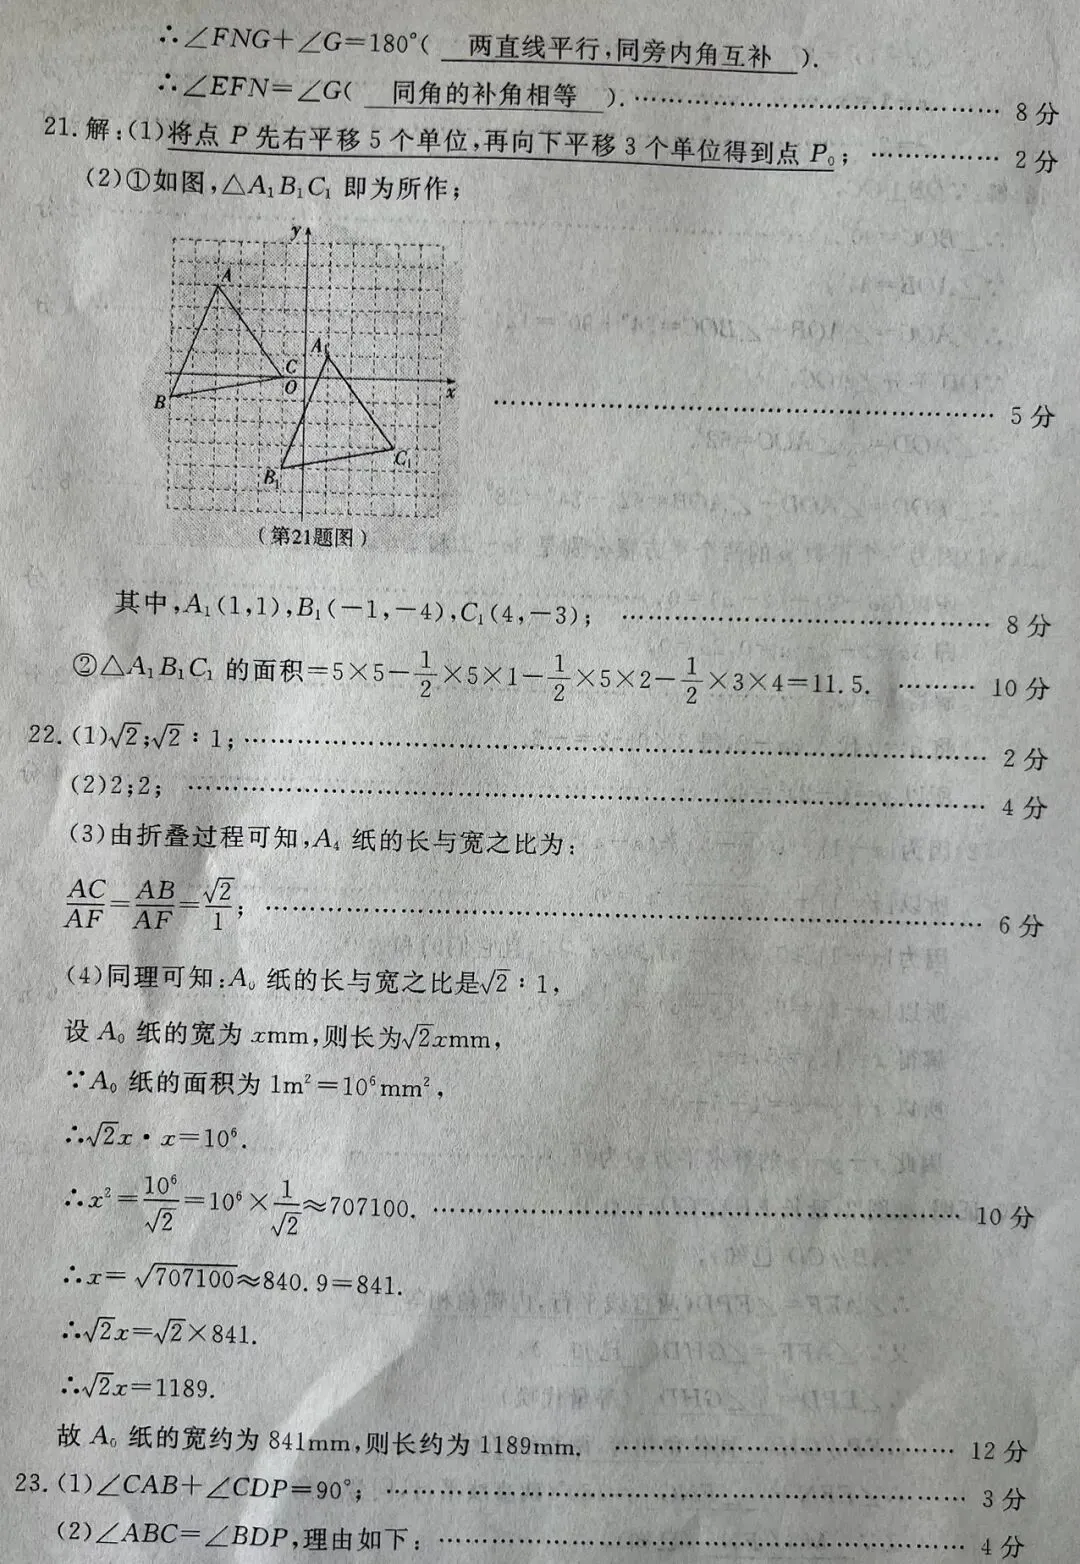 ∴∠FNG+∠G=180°( 两直线平行,同旁内角互补 ).
∴∠EFN=∠G( 同角的补角相等 ). ………………………………… 8 分
21. 解:(1)将点 P 先右平移 5 个单位,再向下平移 3 个单位得到点 P₀; …………… 2 分
(2)①如图,△A₁B₁C₁ 即为所作;
y
A
A₁
C
O
x
B
C₁
B₁
(第21题图)
………………………………………… 5 分
其中,A₁(1,1),B₁(-1,-4),C₁(4,-3); ………………………………… 8 分
②△A₁B₁C₁ 的面积=5×5-1/2×5×1-1/2×5×2-1/2×3×4=11.5. ……… 10 分
22. (1)√2;√2∶1; ………………………………………………………… 2 分
(2)2;2; ………………………………………………………………… 4 分
(3)由折叠过程可知,A₄ 纸的长与宽之比为:
AC/AF=AB/AF=√2/1; ………………………………………………………… 6 分
(4)同理可知:A₀ 纸的长与宽之比是√2∶1,
设 A₀ 纸的宽为 xmm,则长为√2xmm,
∵A₀ 纸的面积为 1m²=10⁶mm²,
∴√2x·x=10⁶.
∴x²=10⁶/√2=10⁶×1/√2≈707100. ……………………………………………… 10 分
∴x=√707100≈840.9=841.
∴√2x=√2×841.
∴√2x=1189.
故 A₀ 纸的宽约为 841mm,则长约为 1189mm. ……………………………… 12 分
23. (1)∠CAB+∠CDP=90°; …………………………………………………… 3 分
(2)∠ABC=∠BDP,理由如下: ……………………………………………… 4 分